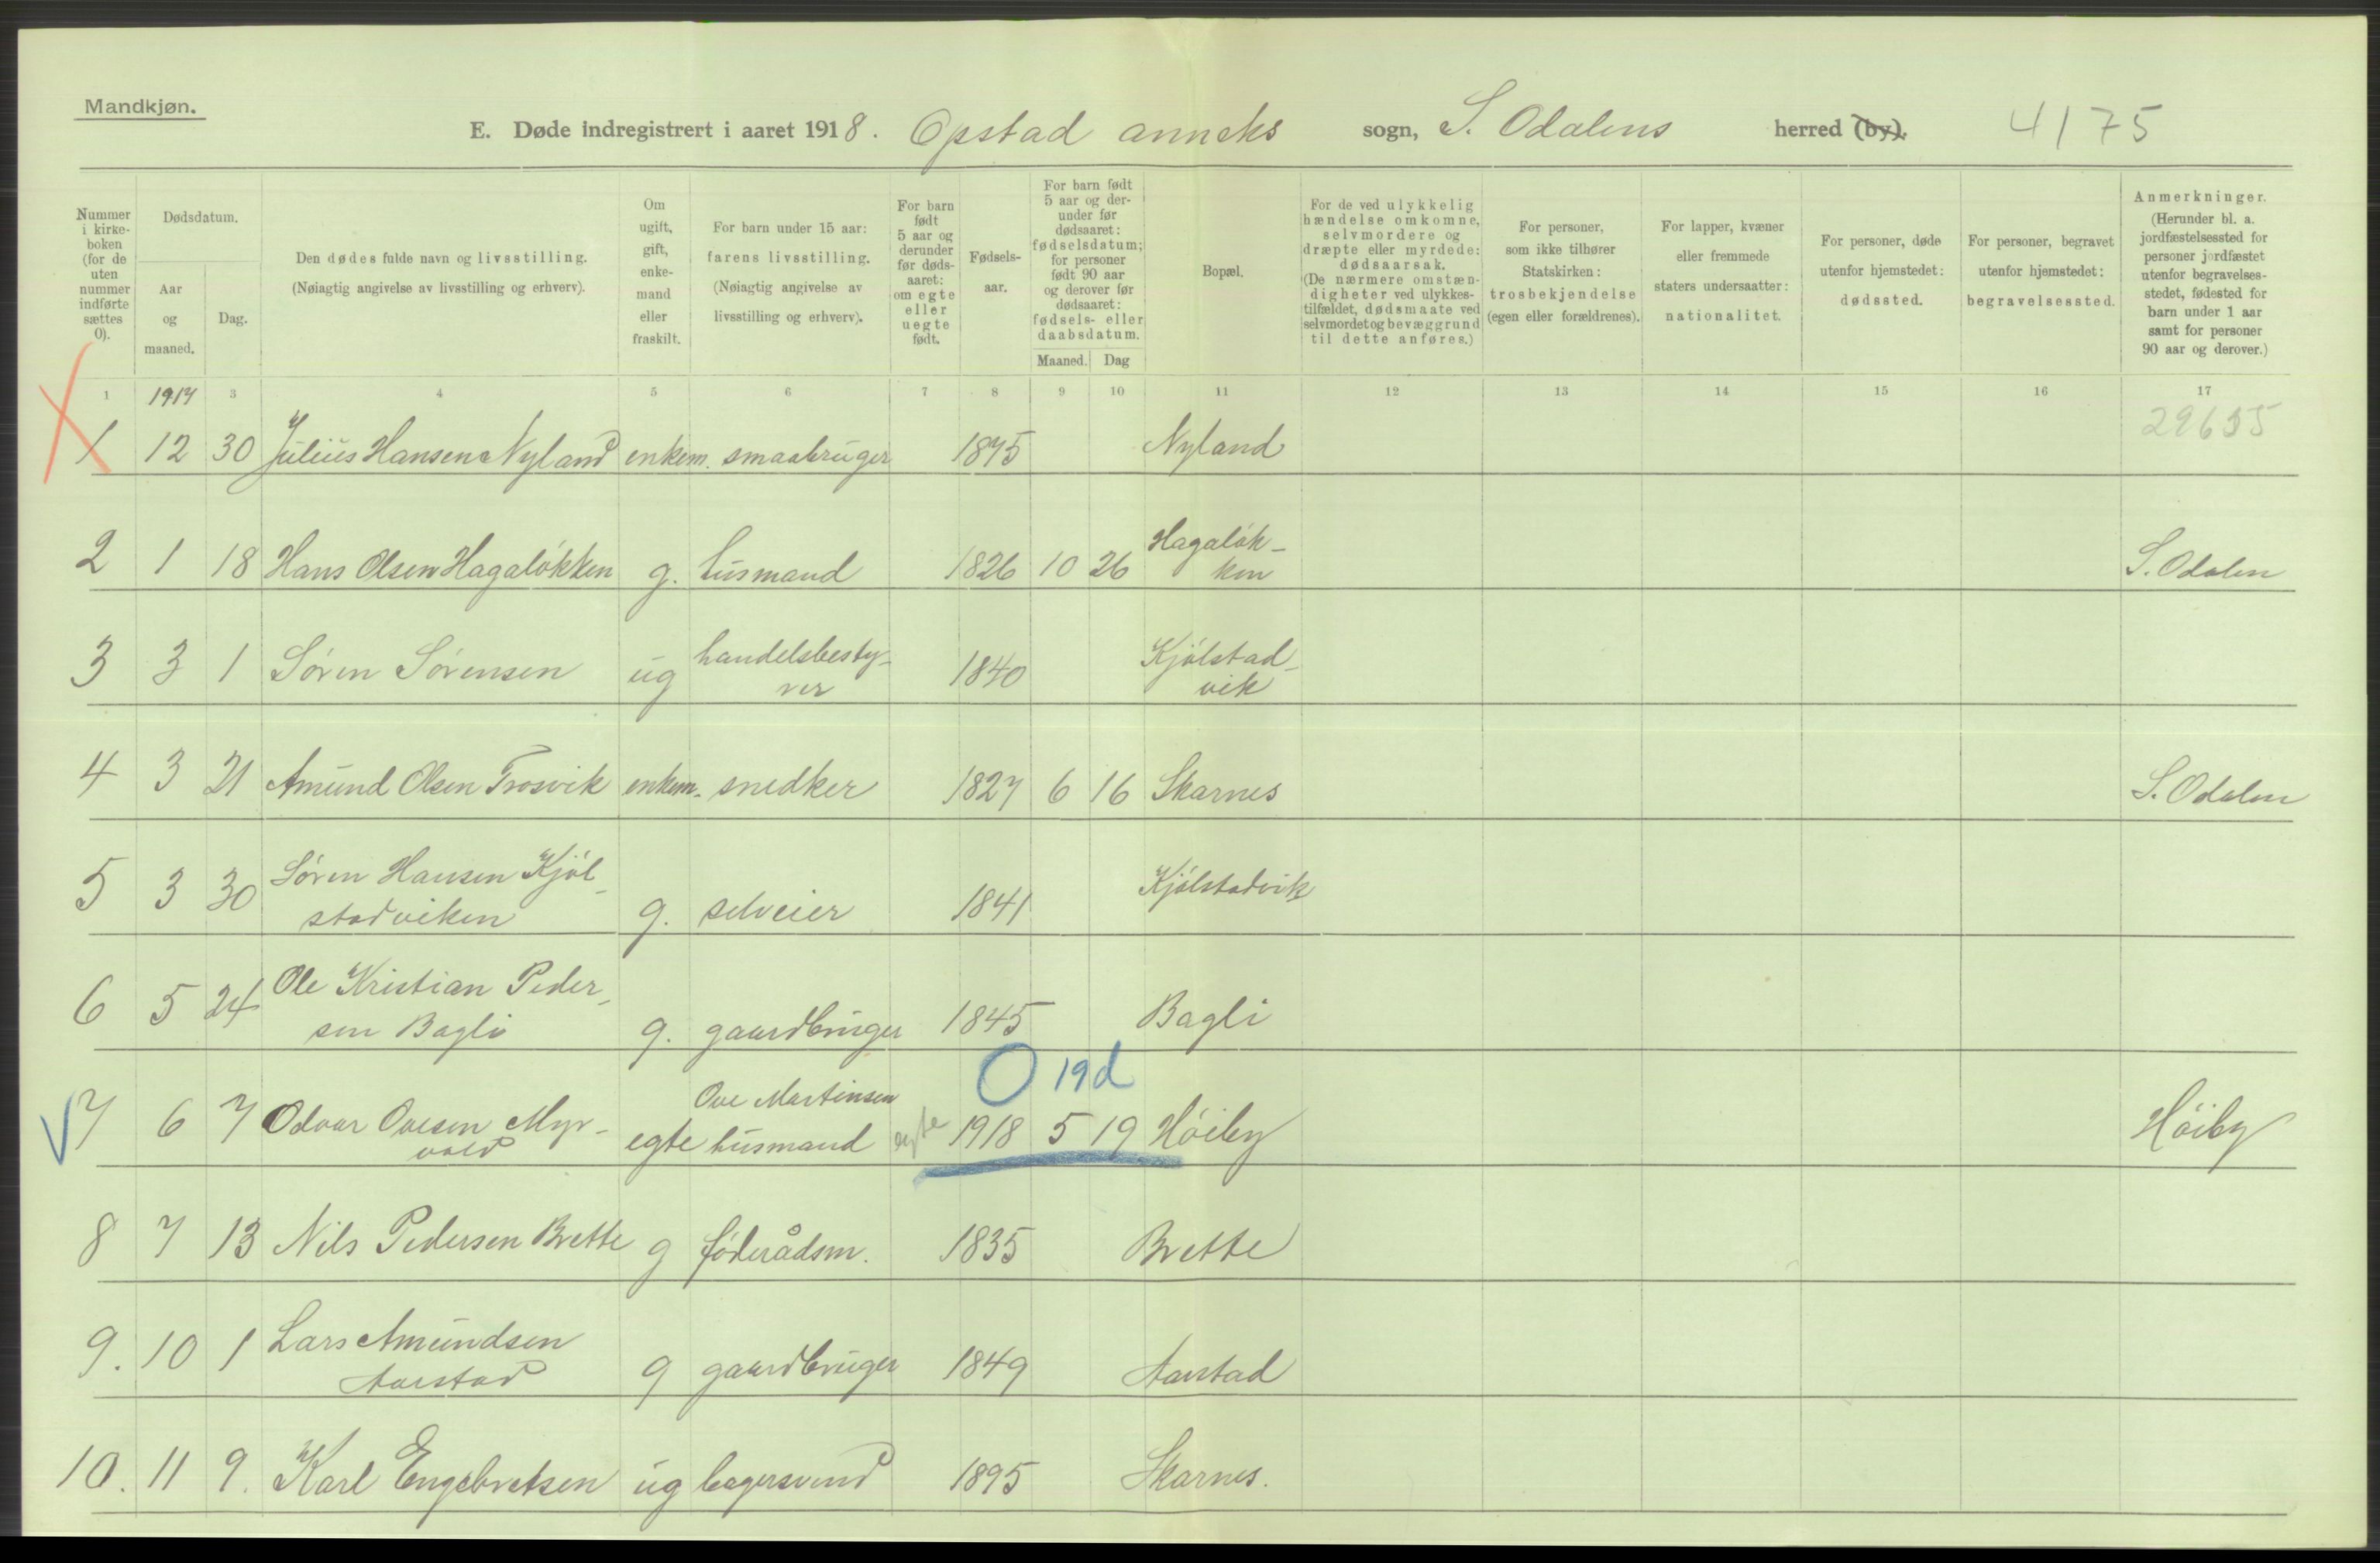 Mandkjøn.
E. Døde indregistrert i aaret 1918. Opstad anneks sogn, S. Odalens herred (by). 4175
Nummer i kirkeboken (for de uten nummer indførte sættes 0).
Dødsdatum.
Aar og maaned.
Dag.
Den dødes fulde navn og livsstilling.
(Nøiagtig angivelse av livsstilling og erhverv).
Om ugift, gift, enkemand eller fraskilt.
For barn under 15 aar: farens livsstilling.
(Nøiagtig angivelse av livsstilling og erhverv).
For barn født 5 aar og derunder før dødsaaret: om egte eller uegte født.
Fødselsaar.
For barn født 5 aar og derunder før dødsaaret: fødselsdatum; for personer født 90 aar og derover før dødsaaret: fødsels- eller daabsdatum.
Maaned. Dag
Bopæl.
For de ved ulykkelig hændelse omkomne, selvmordere og dræpte eller myrdede: dødsaarsak.
(De nærmere omstændigheter ved ulykkestilfældet, dødsmaate ved selvmordet og bevæggrund til dette anføres.)
For personer, som ikke tilhører Statskirken: trosbekjendelse (egen eller forældrenes).
For lapper, kvæner eller fremmede staters undersaatter: nationalitet.
For personer, døde utenfor hjemstedet: dødssted.
For personer, begravet utenfor hjemstedet: begravelsessted.
Anmerkninger.
(Herunder bl. a. jordfæstelsessted for personer jordfæstet utenfor begravelsesstedet, fødested for barn under 1 aar samt for personer 90 aar og derover.)
1 1917 3 4 5 6 7 8 9 10 11 12 13 14 15 16 17
29635
1 12 30 Julius Hansen Nyland enkem. smaabruger 1875 Nyland
2 1 18 Hans Olsen Hagaløkken g. husmand 1826 10 26 Hagaløk-
ken S. Odalen
3 3 1 Søren Sørensen ug handelsbesty-
rer 1840 Kjølstad-
vik
4 3 21 Amund Olsen Trosvik enkem. snedker 1827 6 16 Skarnes S. Odalen
5 3 30 Søren Hansen Kjøl-
stadviken g. selveier 1841 Kjølstadvik
6 5 24 Ole Kristian Peder-
sen Bagli g. gaardbruger 1845 Bagli
O 19d
7 6 7 Odvar Ovesen Myr-
vold egte Ove Martinsen
husmand egte 1918 5 19 Høiby Høiby
8 7 13 Nils Pedersen Brette g føderådsm. 1835 Brette
9. 10 1 Lars Amundsen
Aarstad g gaardbruger 1849 Aarstad
10. 11 9. Karl Engebretsen ug bagersvend 1895 Skarnes.